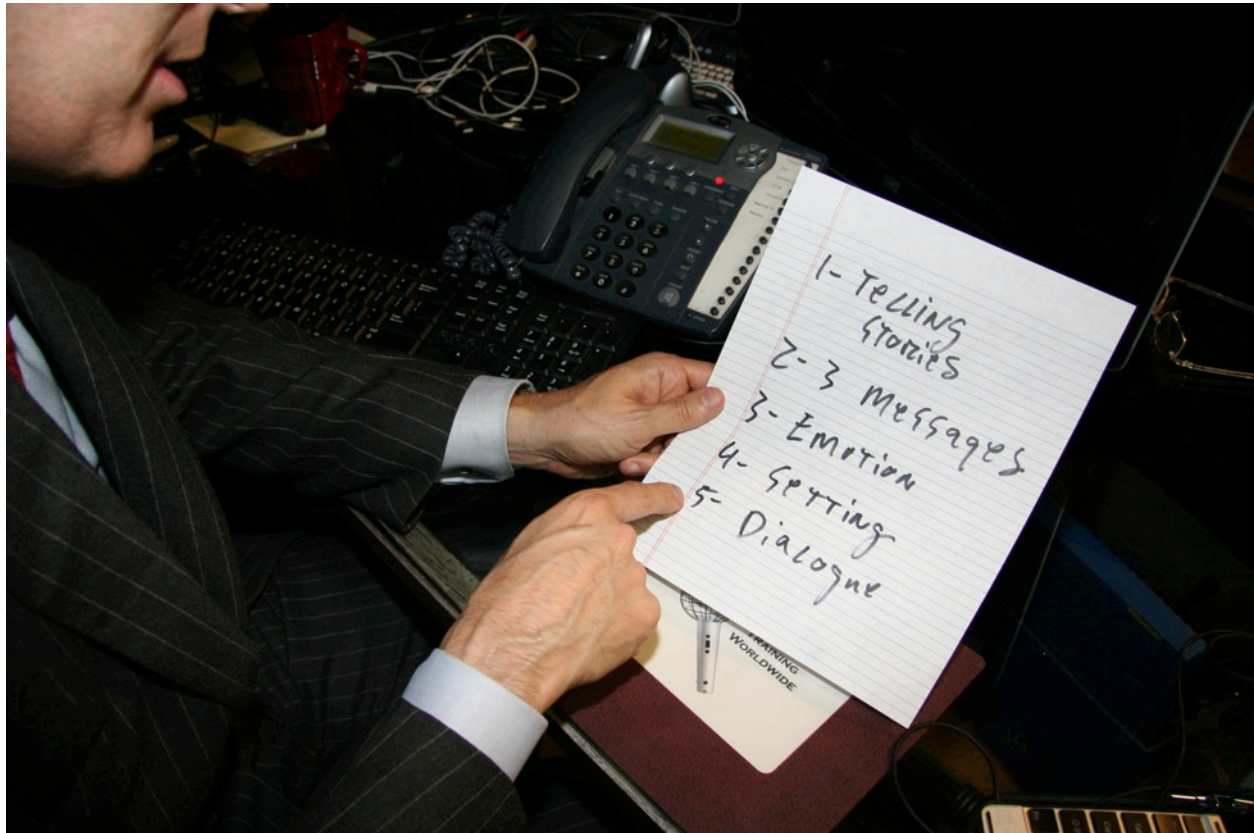 1- Telling
Stories
2- 3 Messages
3- Emotion
4- Setting
5- Dialogue
TRAINING
WORLDWIDE